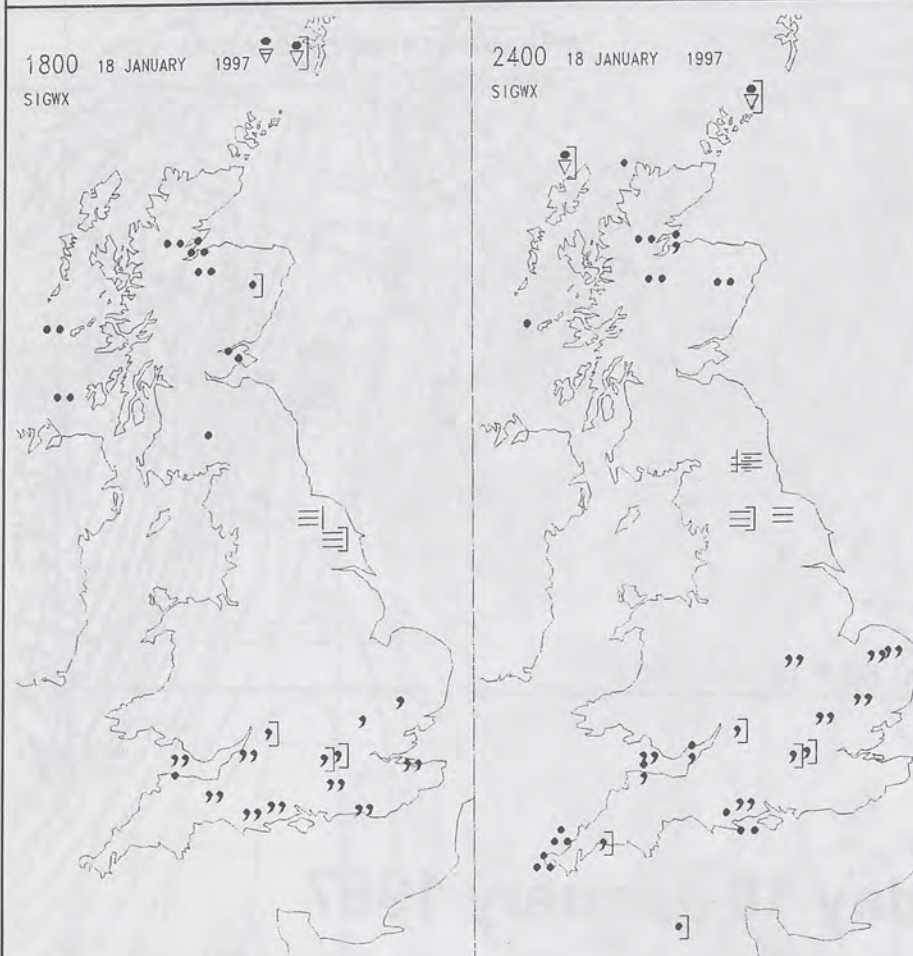 1800 18 JANUARY 1997
SIGWX
2400 18 JANUARY 1997
SIGWX